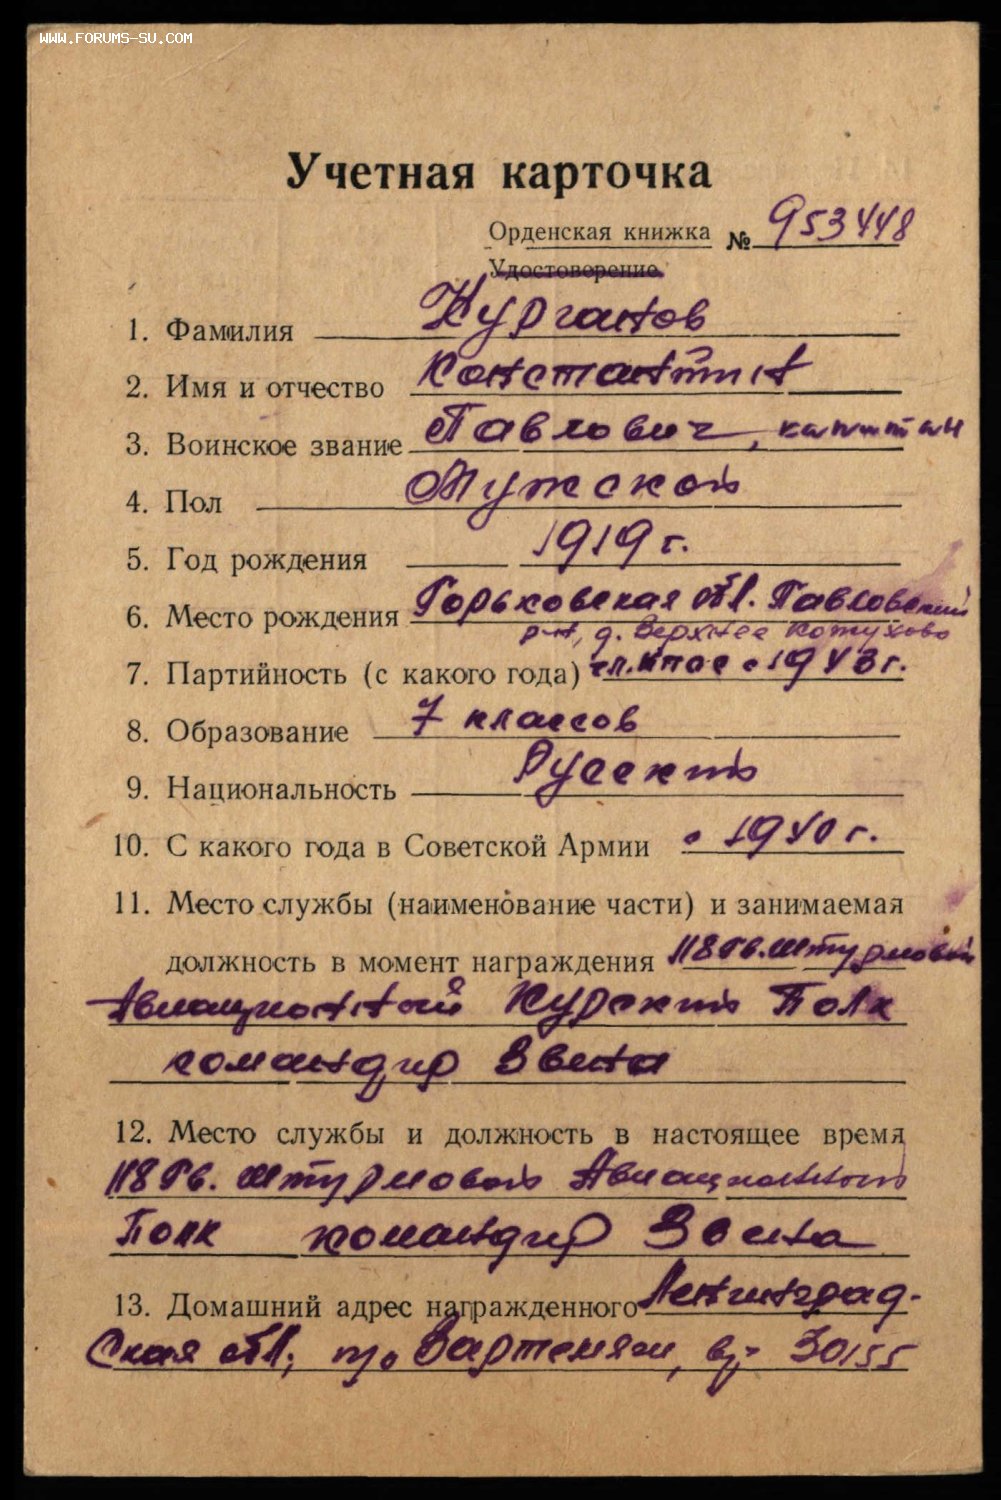 WWW.FORUMS-SU.COM
Учетная карточка
Орденская книжка № 953448
Удостоверение
1. Фамилия Курганов
2. Имя и отчество Константин
3. Воинское звание Павлович, капитан
4. Пол Мужской
5. Год рождения 1919 г.
6. Место рождения Горьковская обл. Павловский
р-н, д. Верхнее Кожухово
7. Партийность (с какого года) чл. КПСС с 1943 г.
8. Образование 7 классов
9. Национальность Русский
10. С какого года в Советской Армии с 1940 г.
11. Место службы (наименование части) и занимаемая
должность в момент награждения 118 Гв. Штурмовой
Авиационный Курский Полк
командир Звена
12. Место службы и должность в настоящее время
118 Гв. Штурмовой Авиационный
Полк командир Звена
13. Домашний адрес награжденного Ленинград-
ская обл, п/о Вартемяки, в/ч 30155